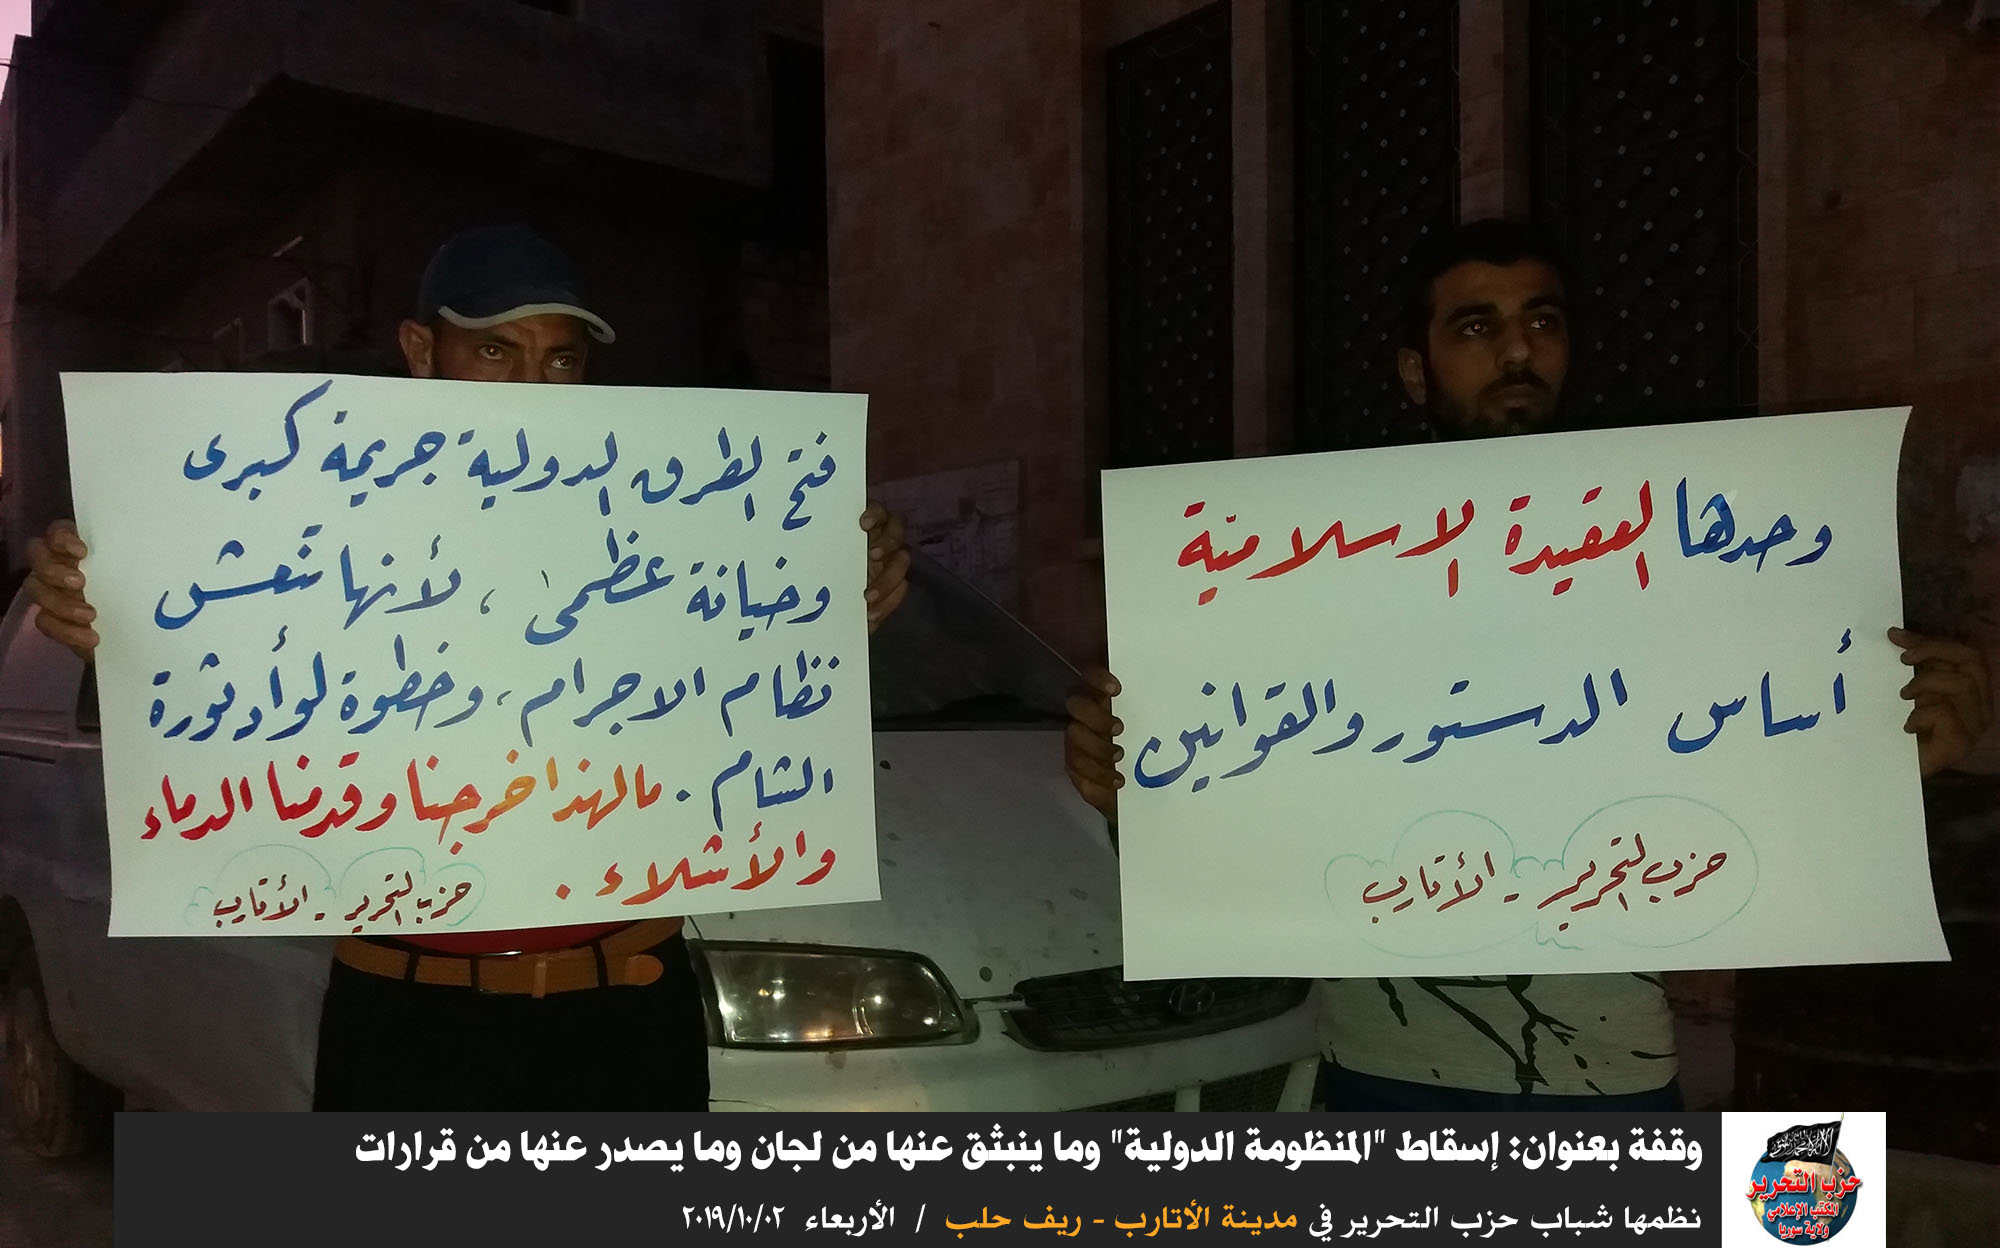 فتح الطرق الدولية جريمة كبرى
وخيانة عظمى، لأنها تنعش
نظام الاجرام، وخطوة لوأد ثورة
الشام. مالهذا خرجنا وقدمنا الدماء
والأشلاء.
حزب التحرير - الأتارب
وحدها العقيدة الاسلاميّة
أساس الدستور والقوانين
حزب التحرير - الأتارب
وقفة بعنوان: إسقاط "المنظومة الدولية" وما ينبثق عنها من لجان وما يصدر عنها من قرارات
نظمها شباب حزب التحرير في مدينة الأتارب - ريف حلب / الأربعاء ٢٠١٩/١٠/٠٢
لا إله إلا الله محمد رسول الله
حزب التحرير
المكتب الإعلامي
ولاية سوريا